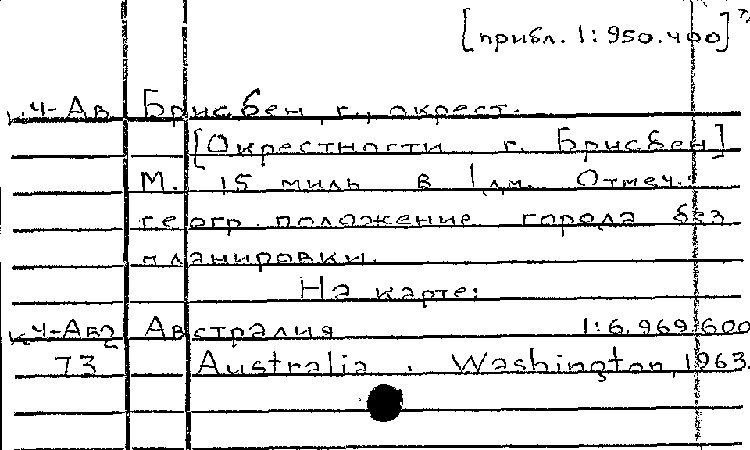 [прибл. 1:950.400]
к4-Ав Брисбен, г., окрест.
[Окрестности г. Брисбен]
М. 15 миль в 1 дм. Отмеч.
геогр. положение города без
планировки.
На карте:
к4-Ав2 Австралия 1:6.969.600
73 Australia. Washington, 1963.